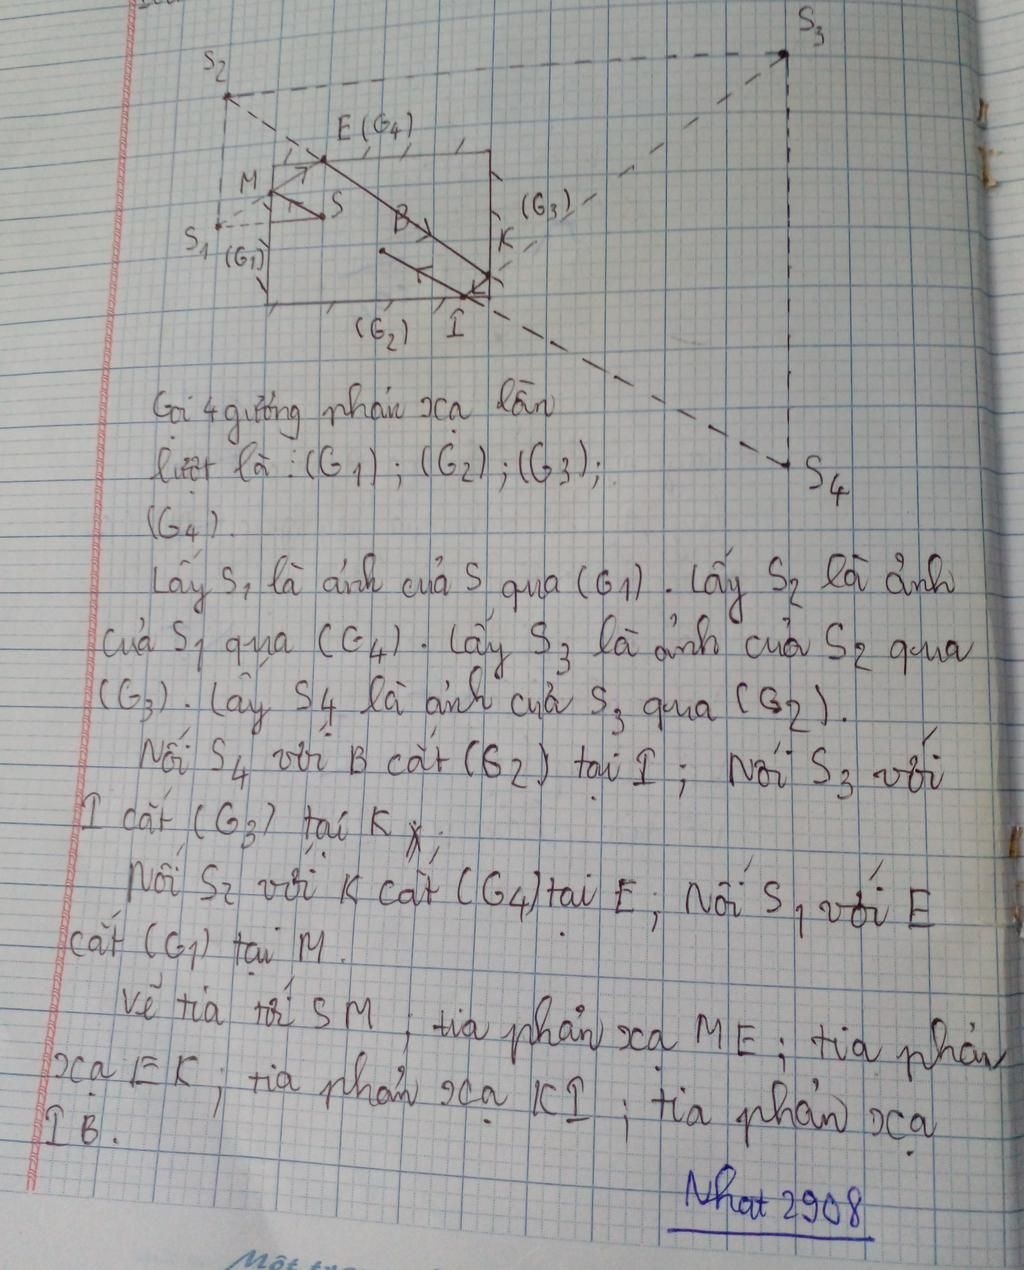 S3
S2
E (G4)
M
S
B
(G3)
K
S1
(G1)
(G2)
I
S4
Gọi 4 gương phản xạ lần
lượt là : (G1) ; (G2) ; (G3) ;
(G4).
Lấy S1 là ảnh của S qua (G1). Lấy S2 là ảnh
của S1 qua (G4). Lấy S3 là ảnh của S2 qua
(G3). Lấy S4 là ảnh của S3 qua (G2).
Nối S4 với B cắt (G2) tại I ; Nối S3 với
I cắt (G3) tại K ;
Nối S2 với K cắt (G4) tại E ; Nối S1 với E
cắt (G1) tại M.
Vẽ tia tới SM ; tia phản xạ ME ; tia phản
xạ EK ; tia phản xạ KI ; tia phản xạ
IB.
Nhat 2908
Một